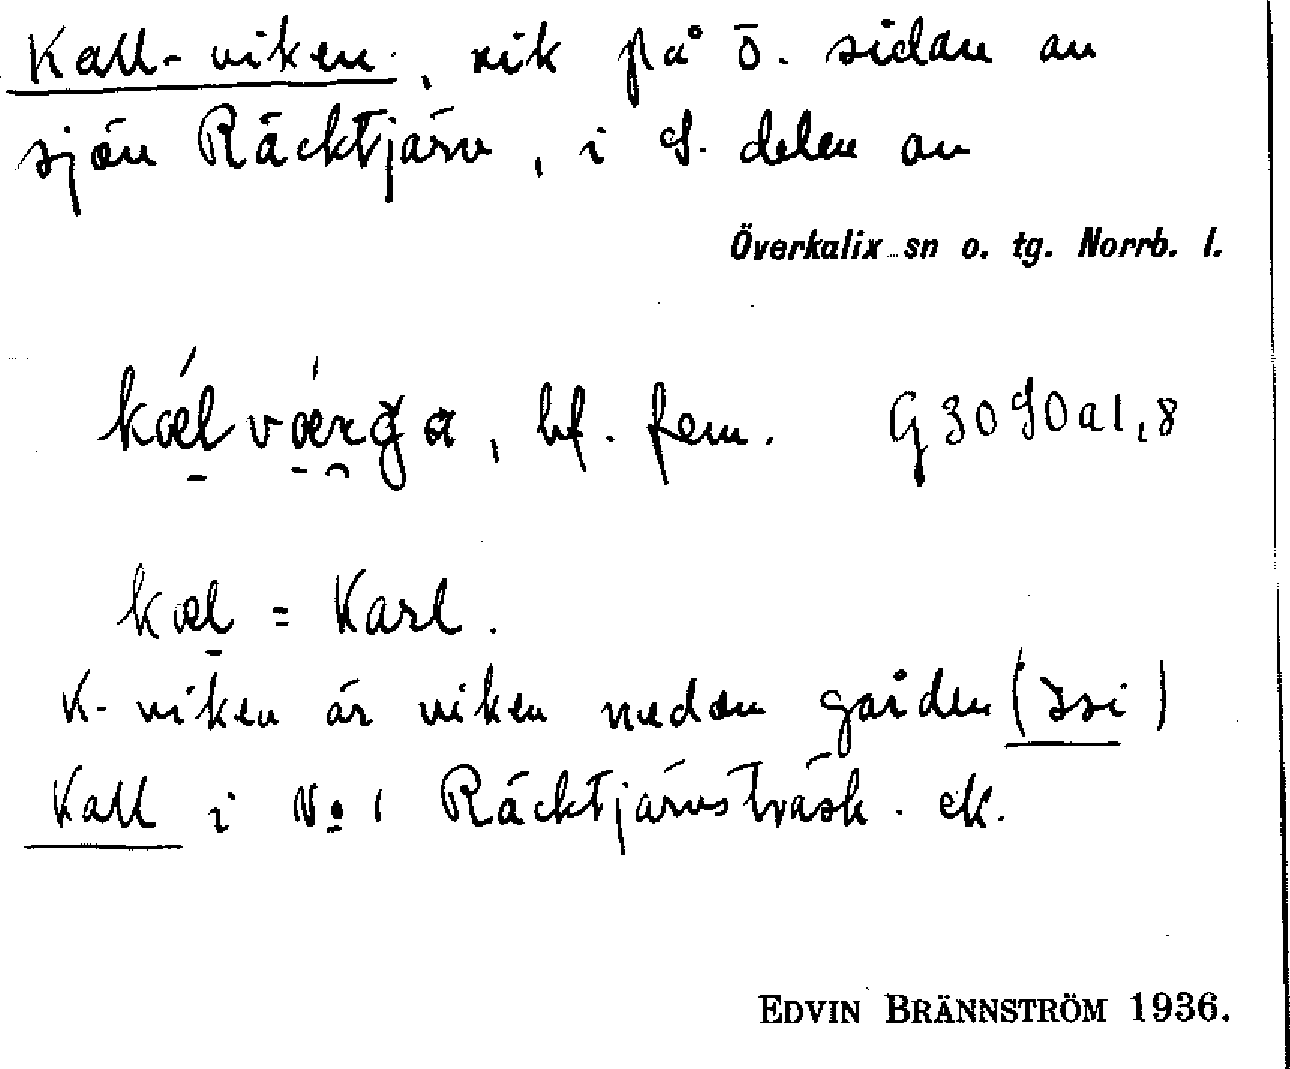 Kall-viken, vik på ö. sidan av
sjön Räcktjärv, i S. delen av
Överkalix sn o. tg. Norrb. l.
kælværga, bf. fem. G3090a1,8
kæl = Karl.
K-viken är viken nedan gården
Kall i No 1 Räcktjärvsträsk. ek.
EDVIN BRÄNNSTRÖM 1936.